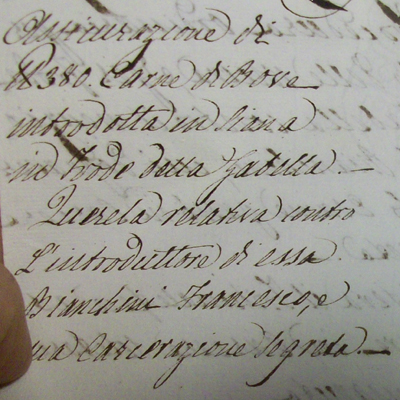 Assicurazione di
lb 380 Carne di Bove
introdotta in Siena
in frode della Gabella. —
Querela relativa contro
L'introduttore di essa
Bianchini Francesco, e
sua Carcerazione Segreta. —